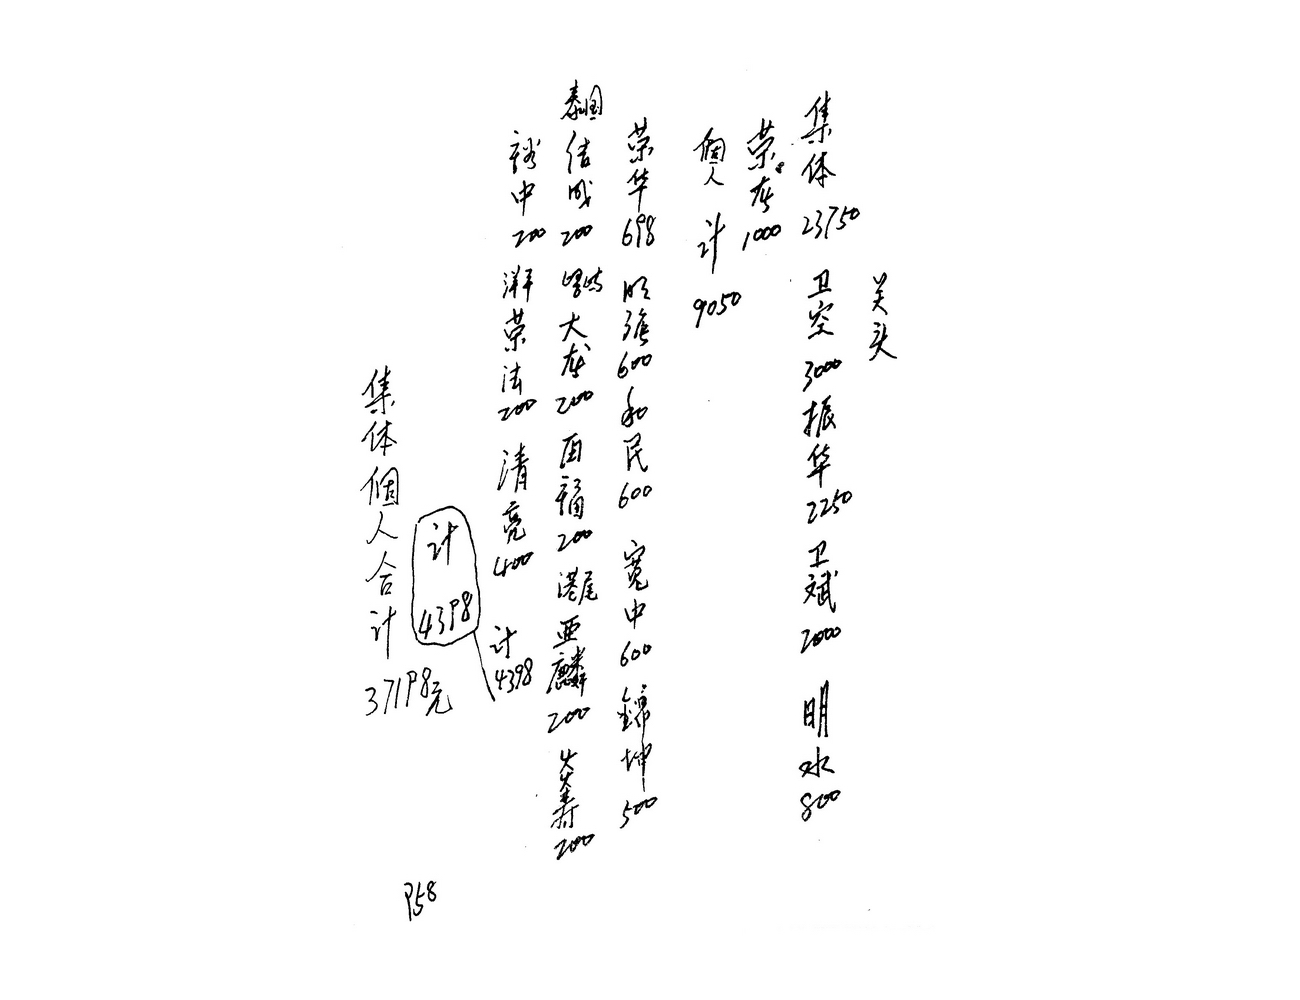 关头
集体 23750 卫空 3000 振华 2250 卫斌 2000 明水 800
荣 1000
個人 计 9050
荣华 698 600 和民 600 寬中 600 錦坤 500
泰国 信成 200 大 200 福 200 港尾 亚麟 200 炎寿 200
中 200 洋平 荣法 200 清亮 400 计 4398
计 4398
集体個人合计 37198元
P58